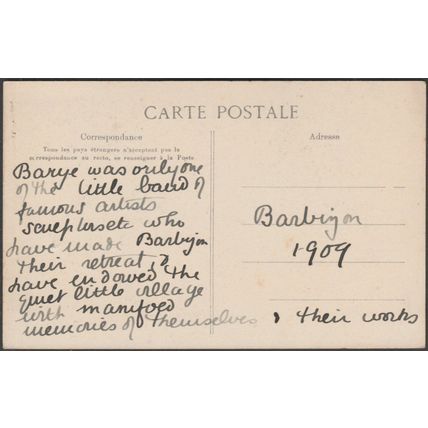 CARTE POSTALE
Correspondance
Tous les pays étrangers n'acceptent pas la
correspondance au recto, se renseigner à la Poste
Adresse
Barye was only one
of the little band of
famous artists
who
have made Barbizon
their retreat, &
have endowed the
quiet little village
with manifold
memories of themselves & their works
Barbizon
1909